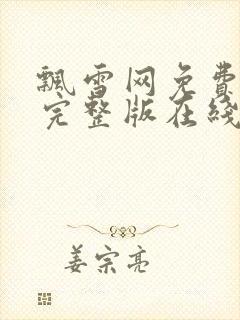 飘雪网免费
完整版在线
姜宗亮